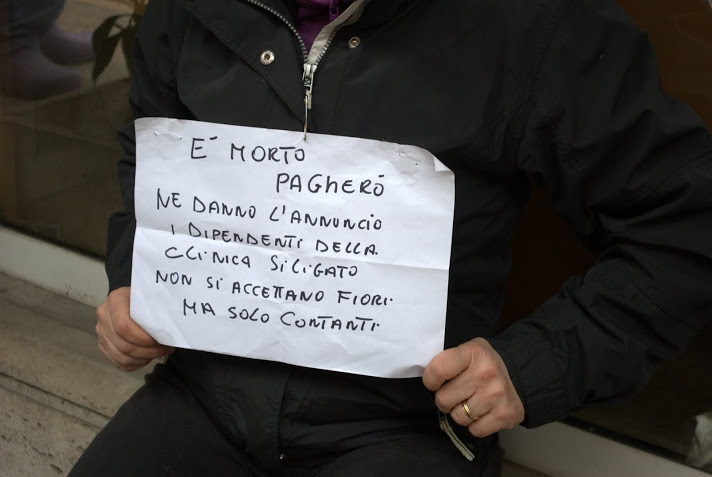 E' MORTO
PAGHERÒ
NE DANNO L'ANNUNCIO
I DIPENDENTI DELLA
CLINICA SILIGATO
NON SI ACCETTANO FIORI.
MA SOLO CONTANTI.